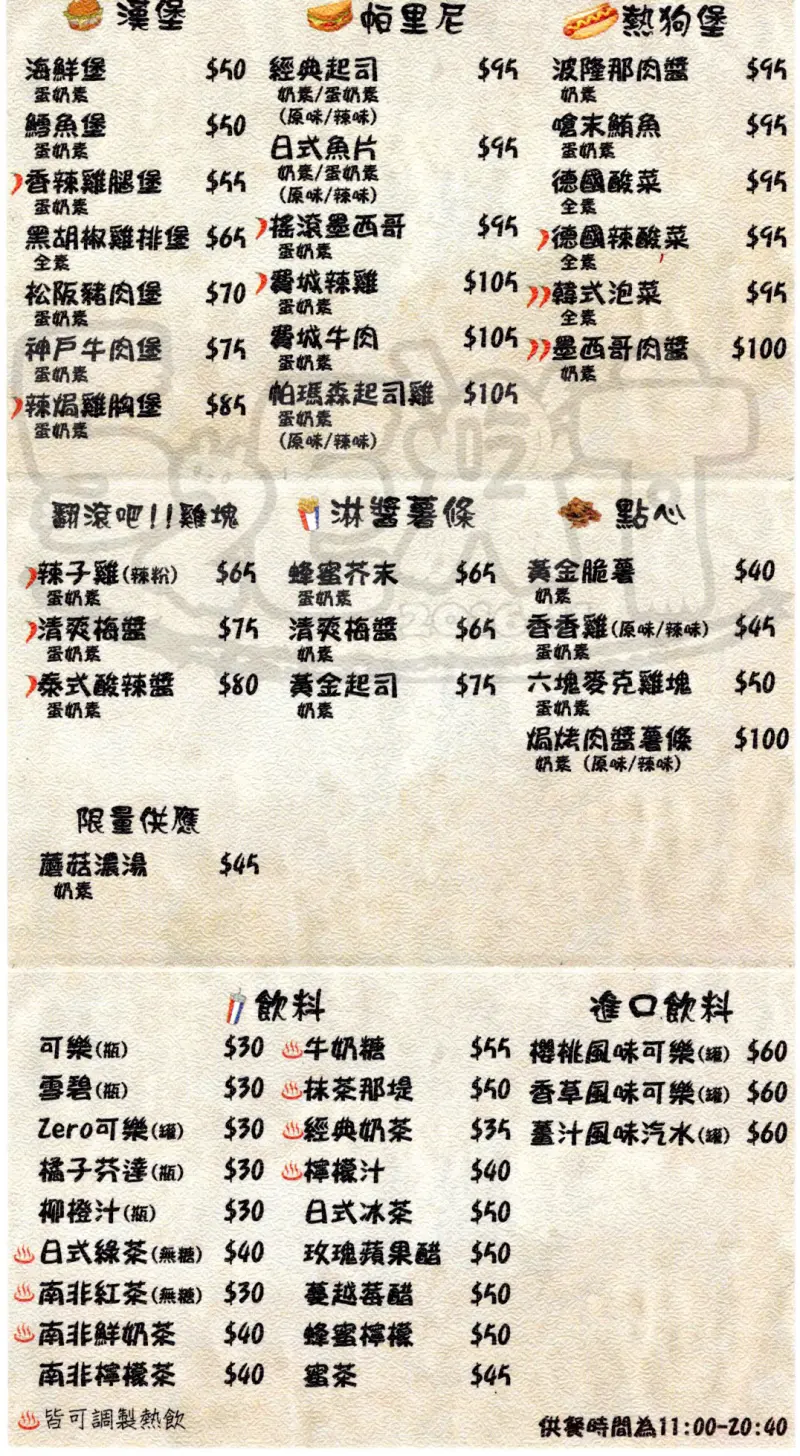 漢堡
海鮮堡 $50
蛋奶素
鱈魚堡 $50
蛋奶素
香辣雞腿堡 $55
蛋奶素
黑胡椒雞排堡 $65
全素
松阪豬肉堡 $70
蛋奶素
神戶牛肉堡 $75
蛋奶素
辣焗雞胸堡 $85
蛋奶素
帕里尼
經典起司 $95
奶素/蛋奶素
(原味/辣味)
日式魚片 $95
奶素/蛋奶素
(原味/辣味)
搖滾墨西哥 $95
蛋奶素
費城辣雞 $105
蛋奶素
費城牛肉 $105
蛋奶素
帕瑪森起司雞 $105
蛋奶素
(原味/辣味)
熱狗堡
波隆那肉醬 $95
奶素
嗆末鮪魚 $95
蛋奶素
德國酸菜 $95
全素
德國辣酸菜 $95
全素
韓式泡菜 $95
全素
墨西哥肉醬 $100
奶素
翻滾吧!!雞塊
辣子雞(辣粉) $65
蛋奶素
清爽梅醬 $75
蛋奶素
泰式酸辣醬 $80
蛋奶素
淋醬薯條
蜂蜜芥末 $65
蛋奶素
清爽梅醬 $65
奶素
黃金起司 $75
奶素
點心
黃金脆薯 $40
奶素
香香雞(原味/辣味) $45
蛋奶素
六塊麥克雞塊 $50
蛋奶素
焗烤肉醬薯條 $100
奶素 (原味/辣味)
限量供應
蘑菇濃湯 $45
奶素
飲料
可樂(瓶) $30
雪碧(瓶) $30
Zero可樂(罐) $30
橘子芬達(瓶) $30
柳橙汁(瓶) $30
日式綠茶(無糖) $40
南非紅茶(無糖) $30
南非鮮奶茶 $40
南非檸檬茶 $40
牛奶糖 $55
抹茶那堤 $50
經典奶茶 $35
檸檬汁 $40
日式冰茶 $50
玫瑰蘋果醋 $50
蔓越莓醋 $50
蜂蜜檸檬 $50
蜜茶 $45
進口飲料
櫻桃風味可樂(罐) $60
香草風味可樂(罐) $60
薑汁風味汽水(罐) $60
皆可調製熱飲
供餐時間為11:00-20:40